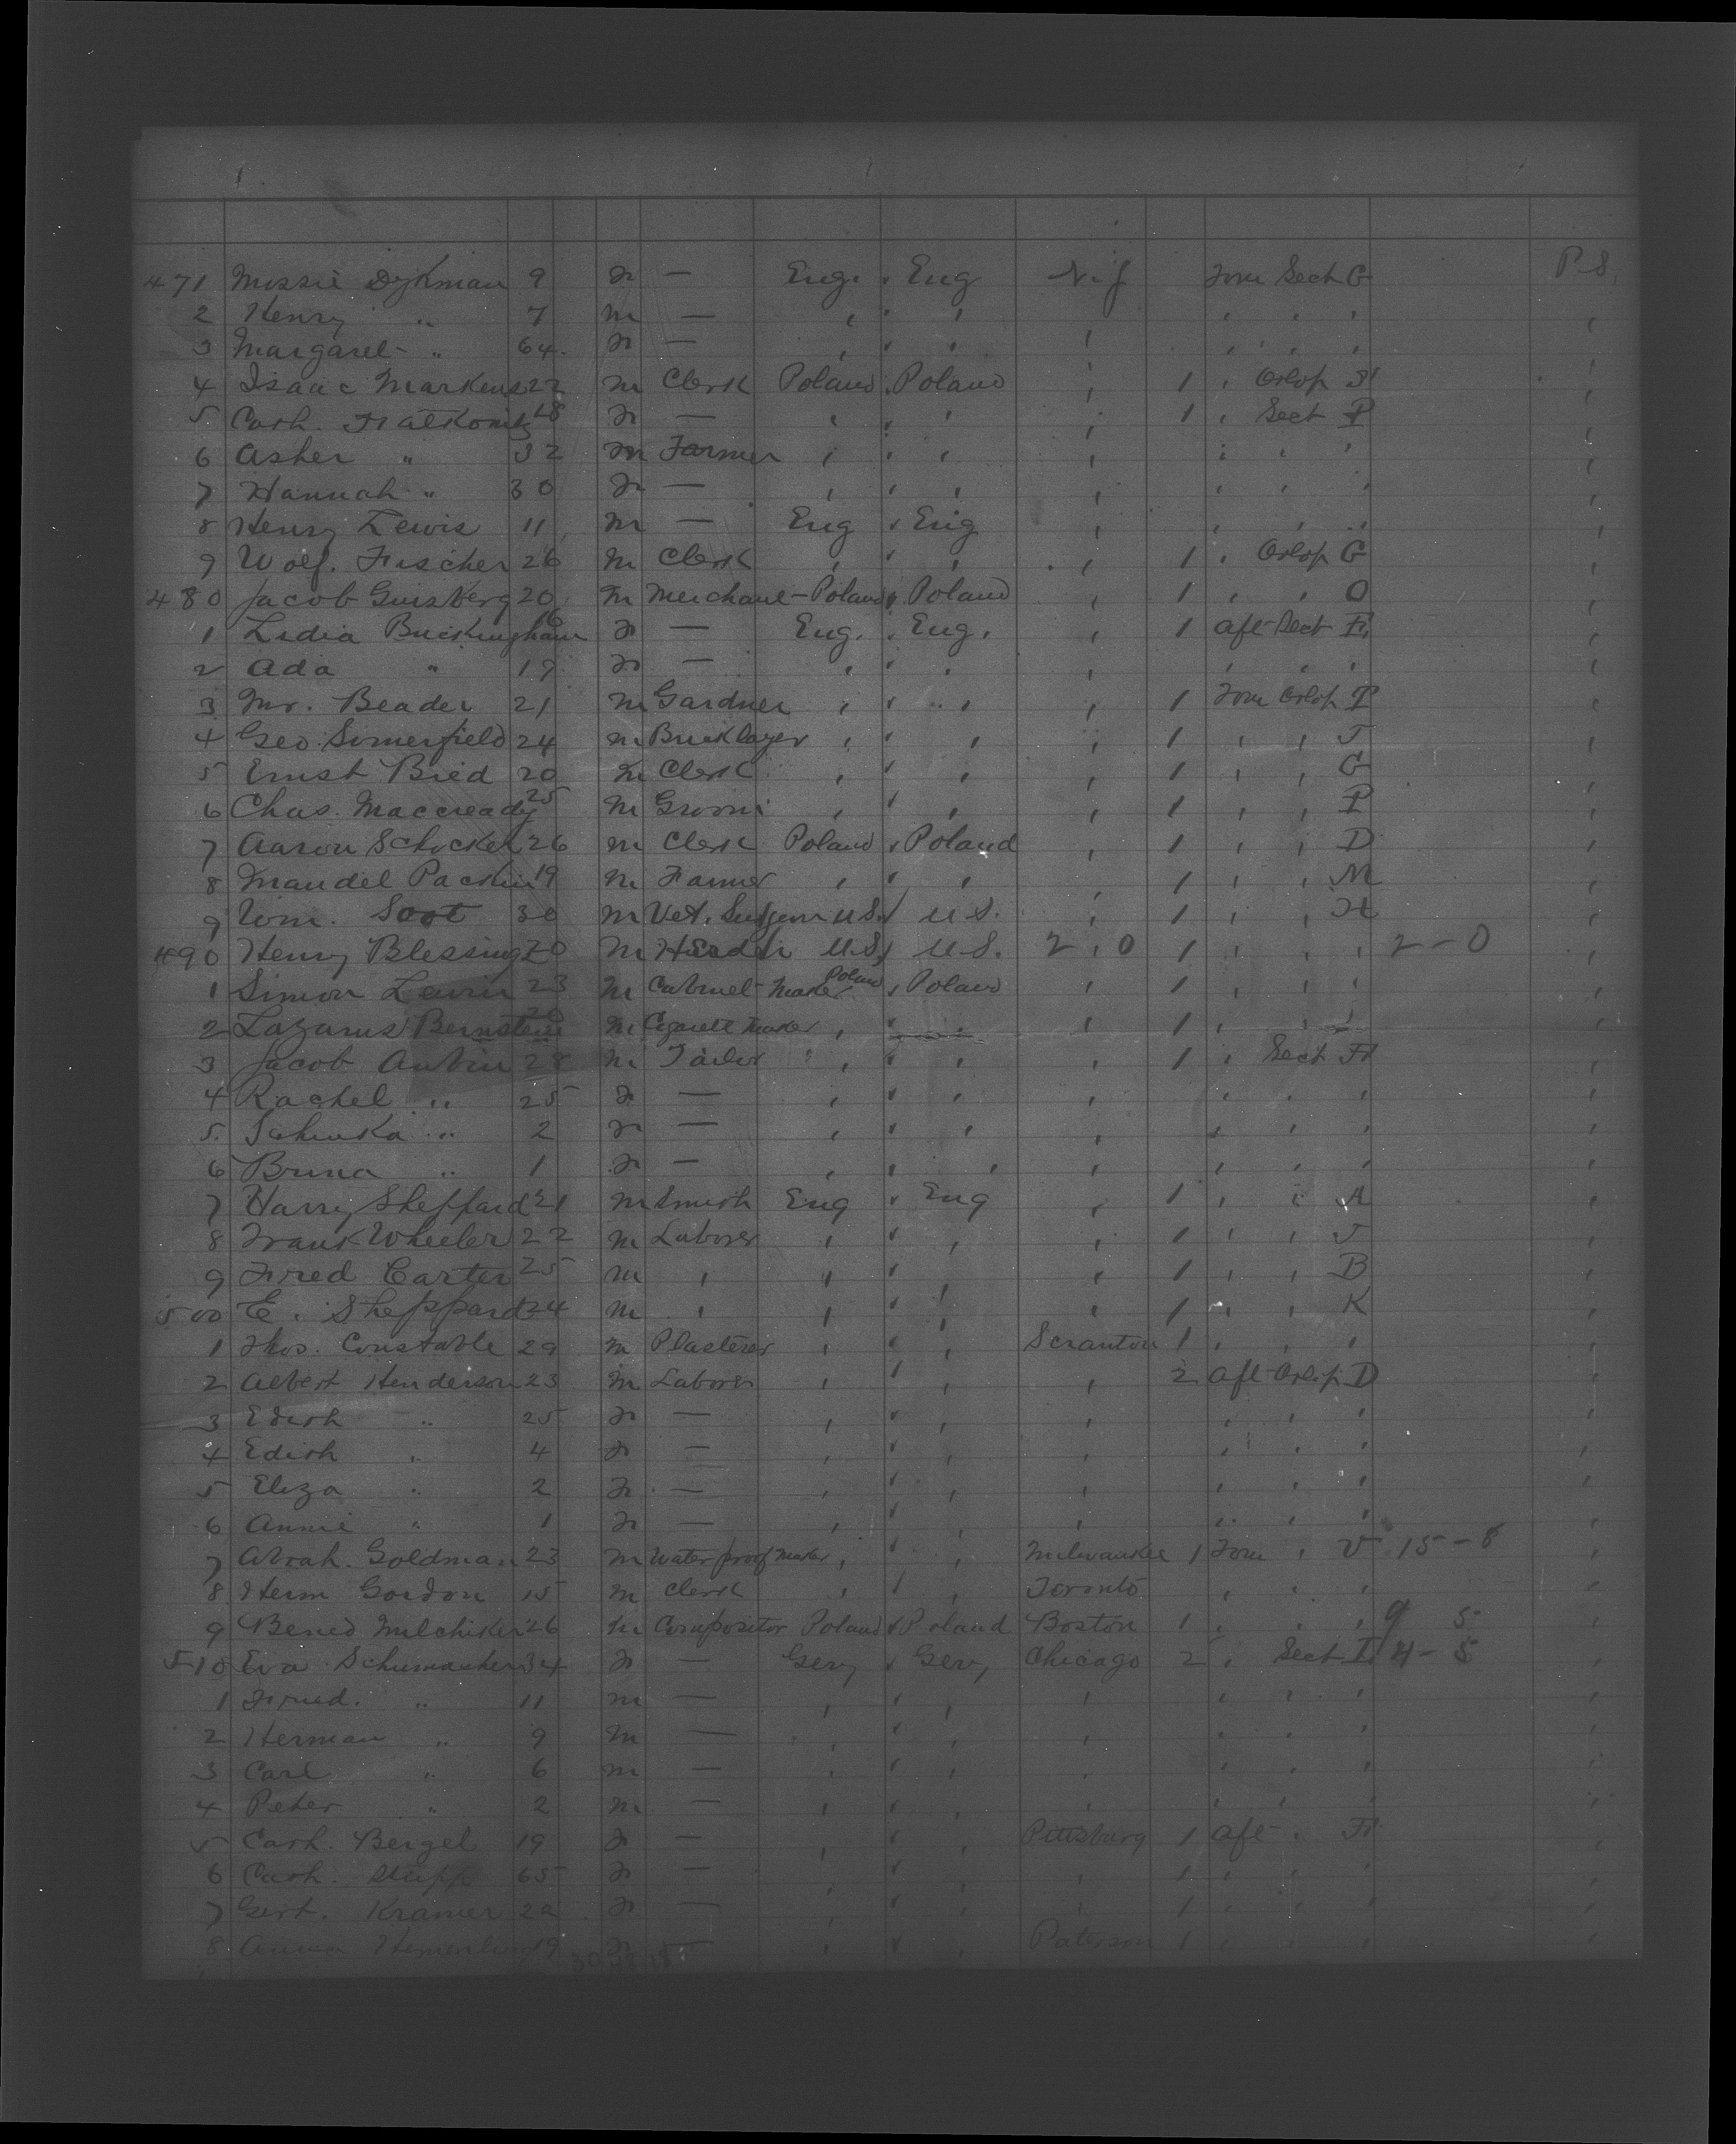 471 Missie Dykman 9 F — Eng. " Eng N.Y. Forw Sect G P.S.
2 Henry " 7 M — " " " " " " "
3 Margaret " 64 F — " " " " " " " "
4 Isaac Markens 22 M Clerk Poland " Poland " 1 " Orlop "
5 Cath. 18 F — " " " " 1 " Sect P "
6 Asher " 32 M Farmer " " " " " " " "
7 Hannah " 30 F — " " " " " " " "
8 Henry Lewis 11 M — Eng " Eng " " " " "
9 Wolf. Fischer 26 M Clerk " " " " 1 " Orlop G "
480 Jacob Ginsberg 20 M Merchant Poland " Poland " 1 " " O "
1 Lidia Buckingham 16 F — Eng. " Eng. " 1 Aft Sect F "
2 Ada " 19 F — " " " " " " " "
3 Mr. Beader 21 M Gardner " " " " 1 Forw Orlop P "
4 Geo. Somerfield 24 M Bricklayer " " " " 1 " " J "
5 Ernst Bied 20 M Clerk " " " " 1 " " G "
6 Chas. Maccready 25 M Groom " " " " 1 " " P "
7 Aaron Schocket 26 M Clerk Poland " Poland " 1 " " D "
8 Mandel 19 M Farmer " " " " 1 " " M "
9 Wm. Soot 30 M Vet. Surgeon U.S. " U.S. " 1 " " H "
490 Henry Blessing 20 M U.S. " U.S. 2 " 0 1 " " " 2 - 0 "
1 Simon Lewin 23 M Cabinet Maker Poland " Poland " 1 " " " "
2 Lazarus Bernstein 20 M Cigarett Maker " " " " 1 " " " "
3 Jacob 28 M Tailor " " " " 1 " Sect F "
4 Rachel " 25 F — " " " " " " " "
5 " 2 F — " " " " " " " "
6 Bruna " 1 F — " " " " " " " "
7 Harry Sheppard 21 M Smith Eng " Eng " 1 " " A "
8 Frank Wheeler 22 M Laborer " " " " 1 " " J "
9 Fred Carter 25 M " " " " " 1 " " B "
500 E. Sheppard 24 M " " " " " 1 " " K "
1 Thos. Constable 29 M Plasterer " " " Scranton 1 " " " "
2 Albert Henderson 23 M Laborer " " " " 2 Aft Orlop D "
3 Edith " 25 F — " " " " " " " "
4 Edith " 4 F — " " " " " " " "
5 Eliza " 2 F — " " " " " " " "
6 Annie " 1 F — " " " " " " " "
7 Abrah. Goldman 23 M Waterproof Maker " " " Milwaukee 1 Forw " V 15 - 8 "
8 Herm Gordon 15 M Clerk " " " Toronto " " " "
9 26 M Compositor Poland " Poland Boston 1 " " " 9 5 "
510 Eva Schumacher 34 F — Gery " Gery Chicago 2 " Sect I 4 - 5 "
1 Fried. " 11 M — " " " " " " " "
2 Herman " 9 M — " " " " " " "
3 Carl " 6 M — " " " " " " "
4 Peter " 2 M — " " " " " " " "
5 Cath. Bergel 19 F — " " " Pittsburg 1 Aft " F "
6 Cath. 65 F — " " " " 1 " " " "
7 Gert. Kramer 22 F — " " " " 1 " " " "
8 Anna 19 F — " " " Paterson 1 " " " "